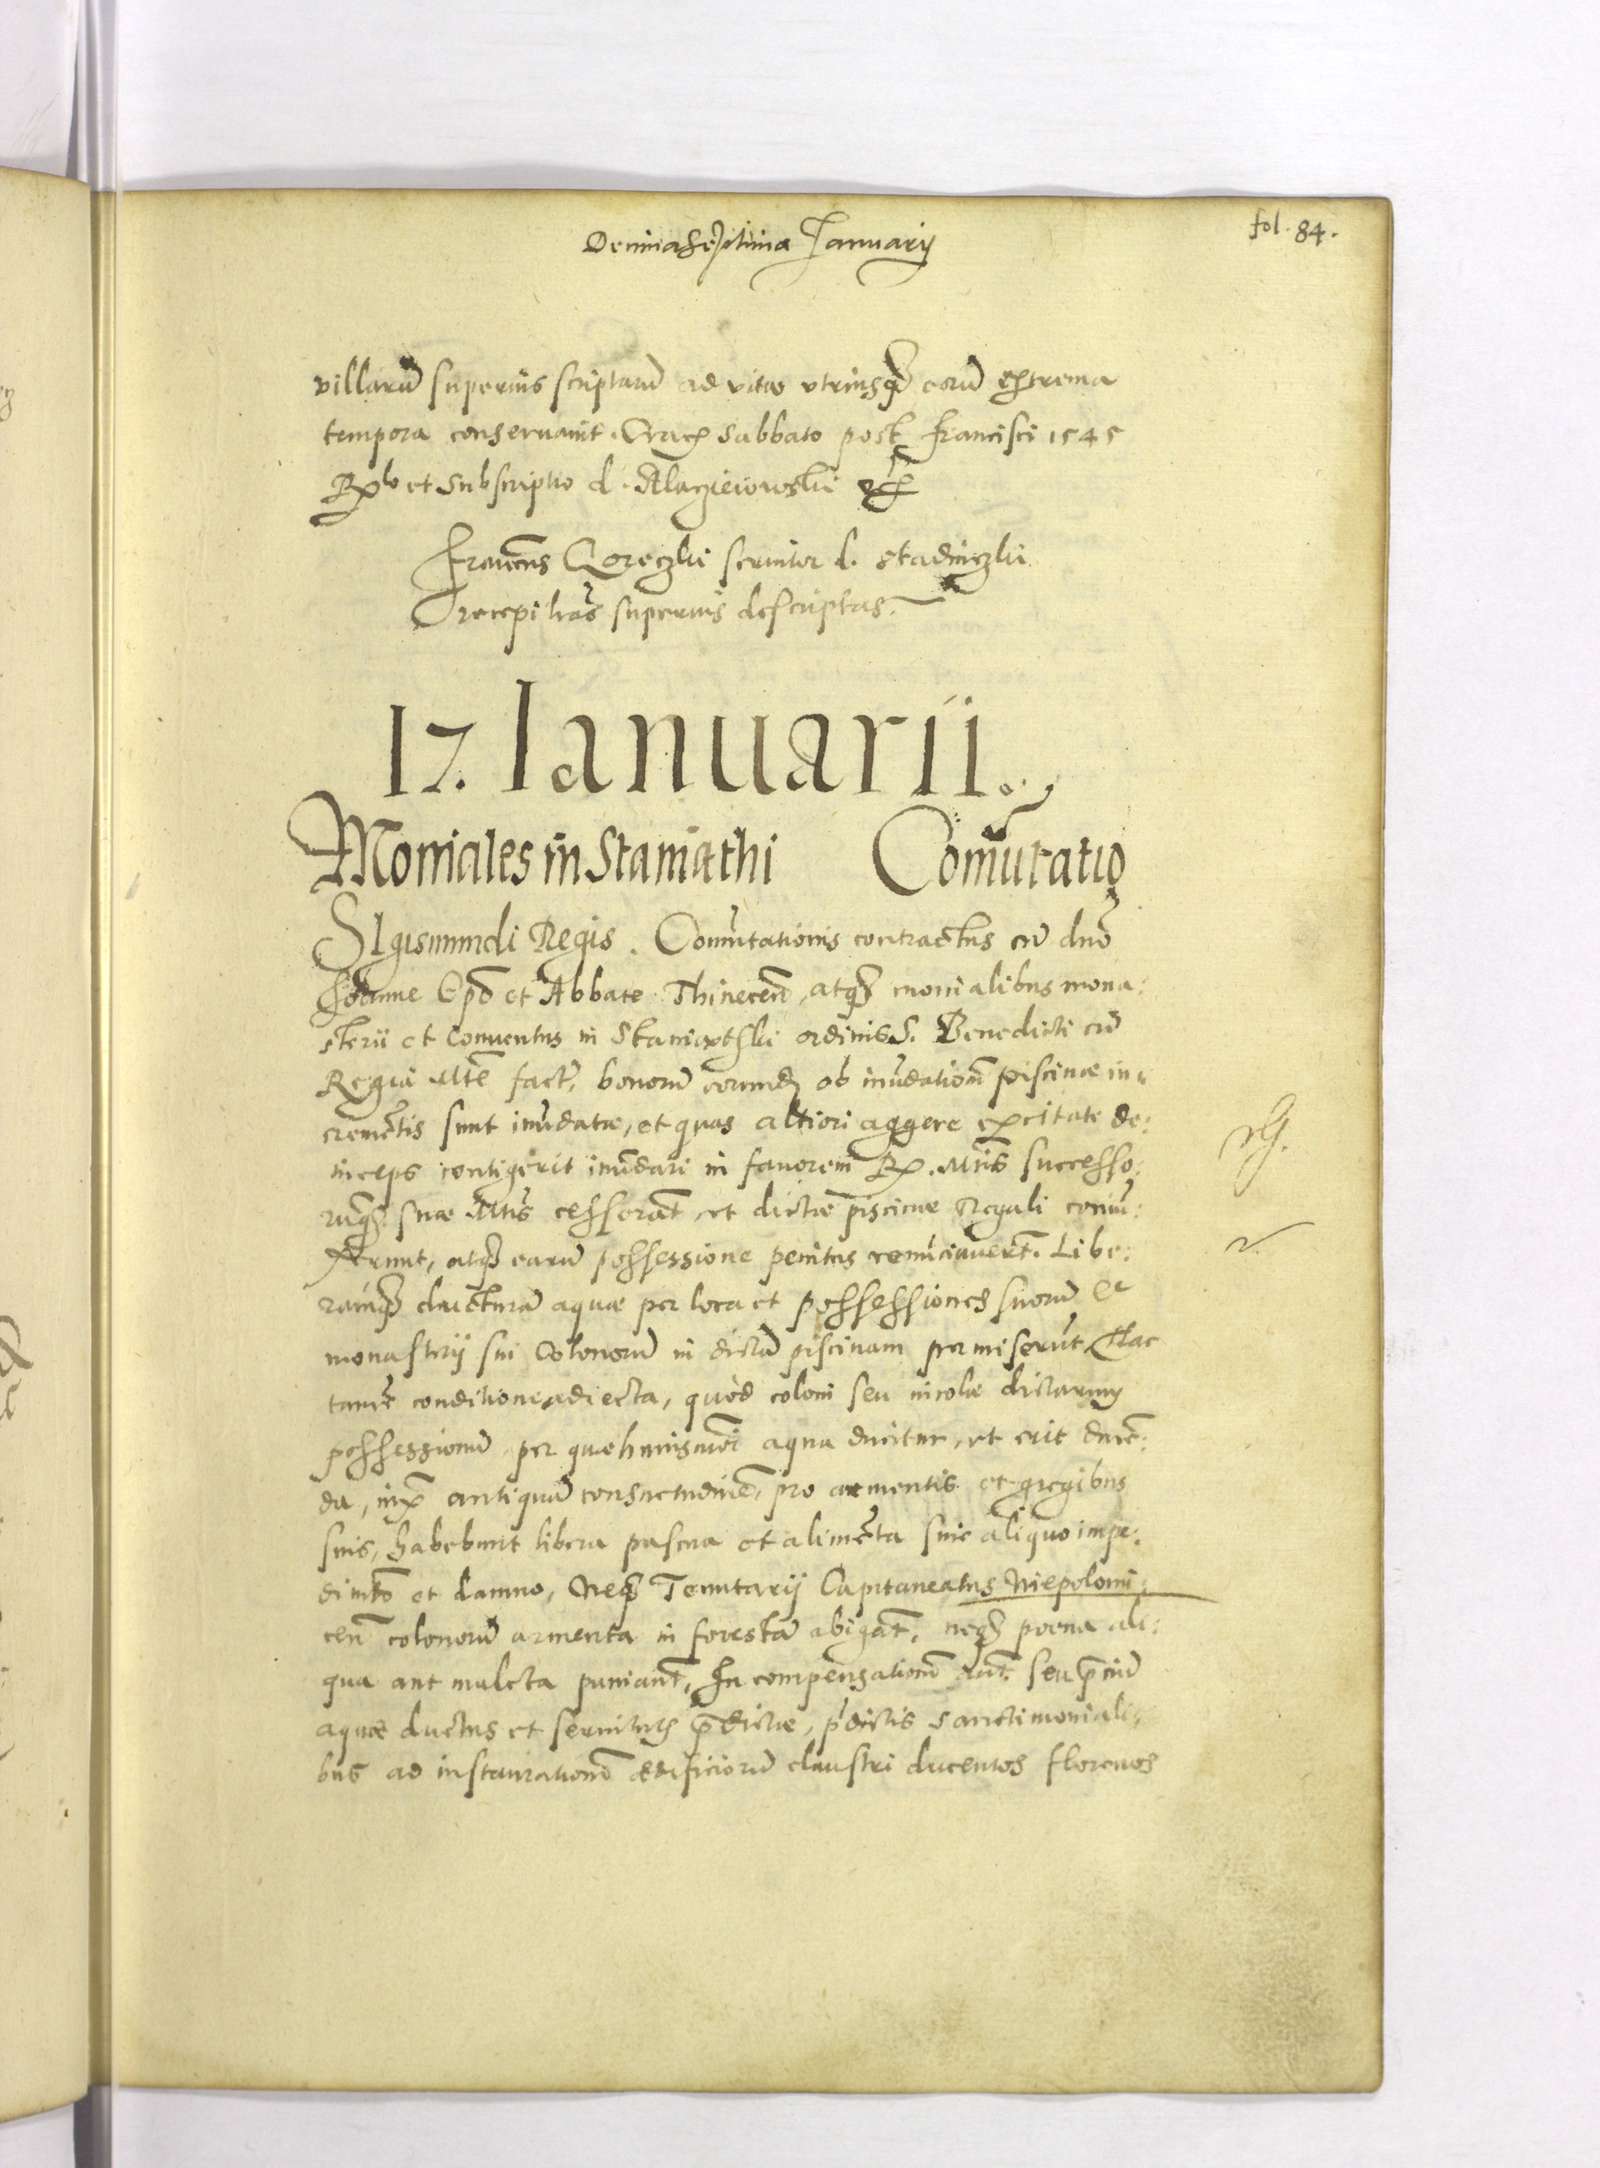 Decimaseptima Januarij
fol. 84.
villarū superius scriptarū ad vitæ utriusq̄ eorū extrema
tempora conservavit. Crac̄ Sabbato post Francisci 1545
et Subscriptio d. Maczieiowski
Goreczki servitor d. Stadniczki
recepi lrās superius descriptas.
17. Ianuarii.
Moniales in Staniathi Comūtatio
SIgismundi Regis. Comūtationis contractus cū dnō
Joanne Epō et Abbate Thinecen̄, atq̄ monialibus mona:
sterii et Conventus in Staniathki ordinis S. Benedicti cū
Regia Mte fact̄, bonorū eorund̄ ob inūdationē piscinæ in
cremētis sunt inūdatæ, et quas altiori aggere excitato de:
inceps contigerit inūdari in favorem R. Mtis successo:
rūq̄ suæ Mtis cesserūt, et dictæ piscinæ Regali coniū:
xerunt, atq̄ earū possessione penitus renūciaverūt. Libe:
rāq̄ ducturā aquæ per loca et possessiones suorū et
monasterij sui Colonorū in dictā piscinam permiserūt. Hac
tamē conditione adiecta, quòd coloni seu incolæ dictarum
possessionū per quas huiusmōi aqua ducitur, et erit ducē:
da, iux̄ antiquā consuetudinē, pro armentis et gregibus
suis, habebunt libera pascua et alimēta sine aliquo impe:
dimēto et damno, Neq̄ Tenutarij Capitaneatus Niepolomi:
cen̄ colonorū armenta in forestā abigāt, neq̄ poena ali:
qua aut mulcta puniant, In compensationē seu p̄ciū
aquæ ductus et servitutis p̄dictæ, p̄dictis Sanctimoniali:
bus ad instaurationē ædificiorū claustri ducentos florenos